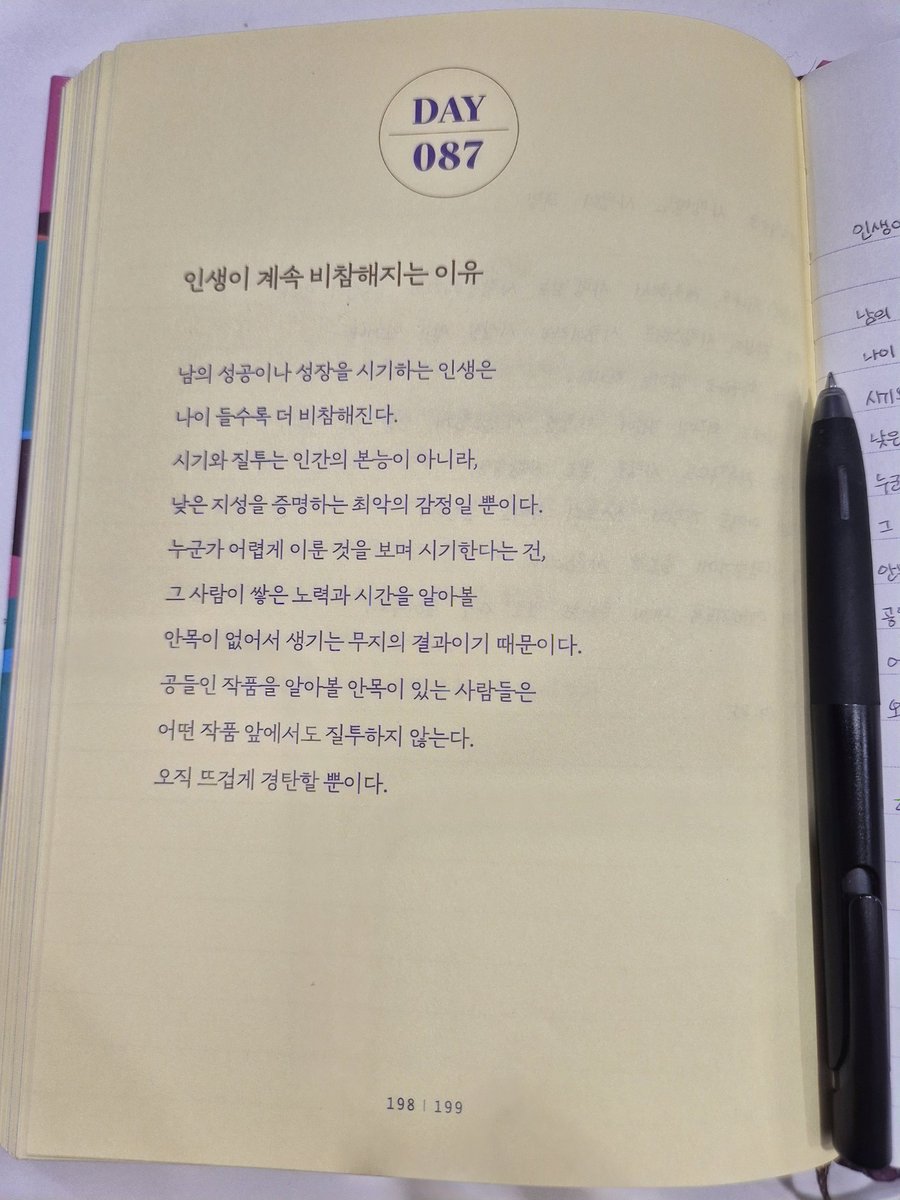 DAY
087
인생이 계속 비참해지는 이유
남의 성공이나 성장을 시기하는 인생은
나이 들수록 더 비참해진다.
시기와 질투는 인간의 본능이 아니라,
낮은 지성을 증명하는 최악의 감정일 뿐이다.
누군가 어렵게 이룬 것을 보며 시기한다는 건,
그 사람이 쌓은 노력과 시간을 알아볼
안목이 없어서 생기는 무지의 결과이기 때문이다.
공들인 작품을 알아볼 안목이 있는 사람들은
어떤 작품 앞에서도 질투하지 않는다.
오직 뜨겁게 경탄할 뿐이다.
198 | 199
남의
나이
낮은
그